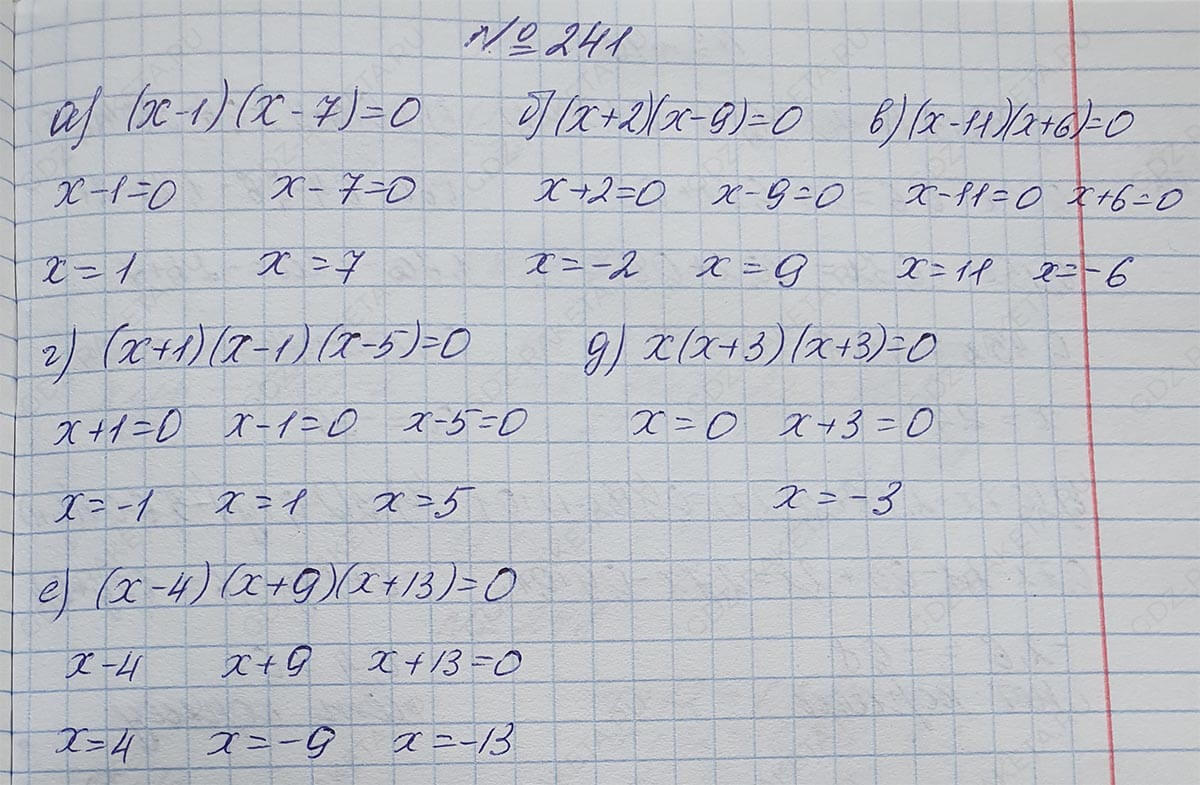 № 241
а) (x-1)(x-7)=0 б) (x+2)(x-9)=0 в) (x-11)(x+6)=0
x-1=0 x-7=0 x+2=0 x-9=0 x-11=0 x+6=0
x=1 x=7 x=-2 x=9 x=11 x=-6
г) (x+1)(x-1)(x-5)=0 д) x(x+3)(x+3)=0
x+1=0 x-1=0 x-5=0 x=0 x+3=0
x=-1 x=1 x=5 x=-3
е) (x-4)(x+9)(x+13)=0
x-4 x+9 x+13=0
x=4 x=-9 x=-13